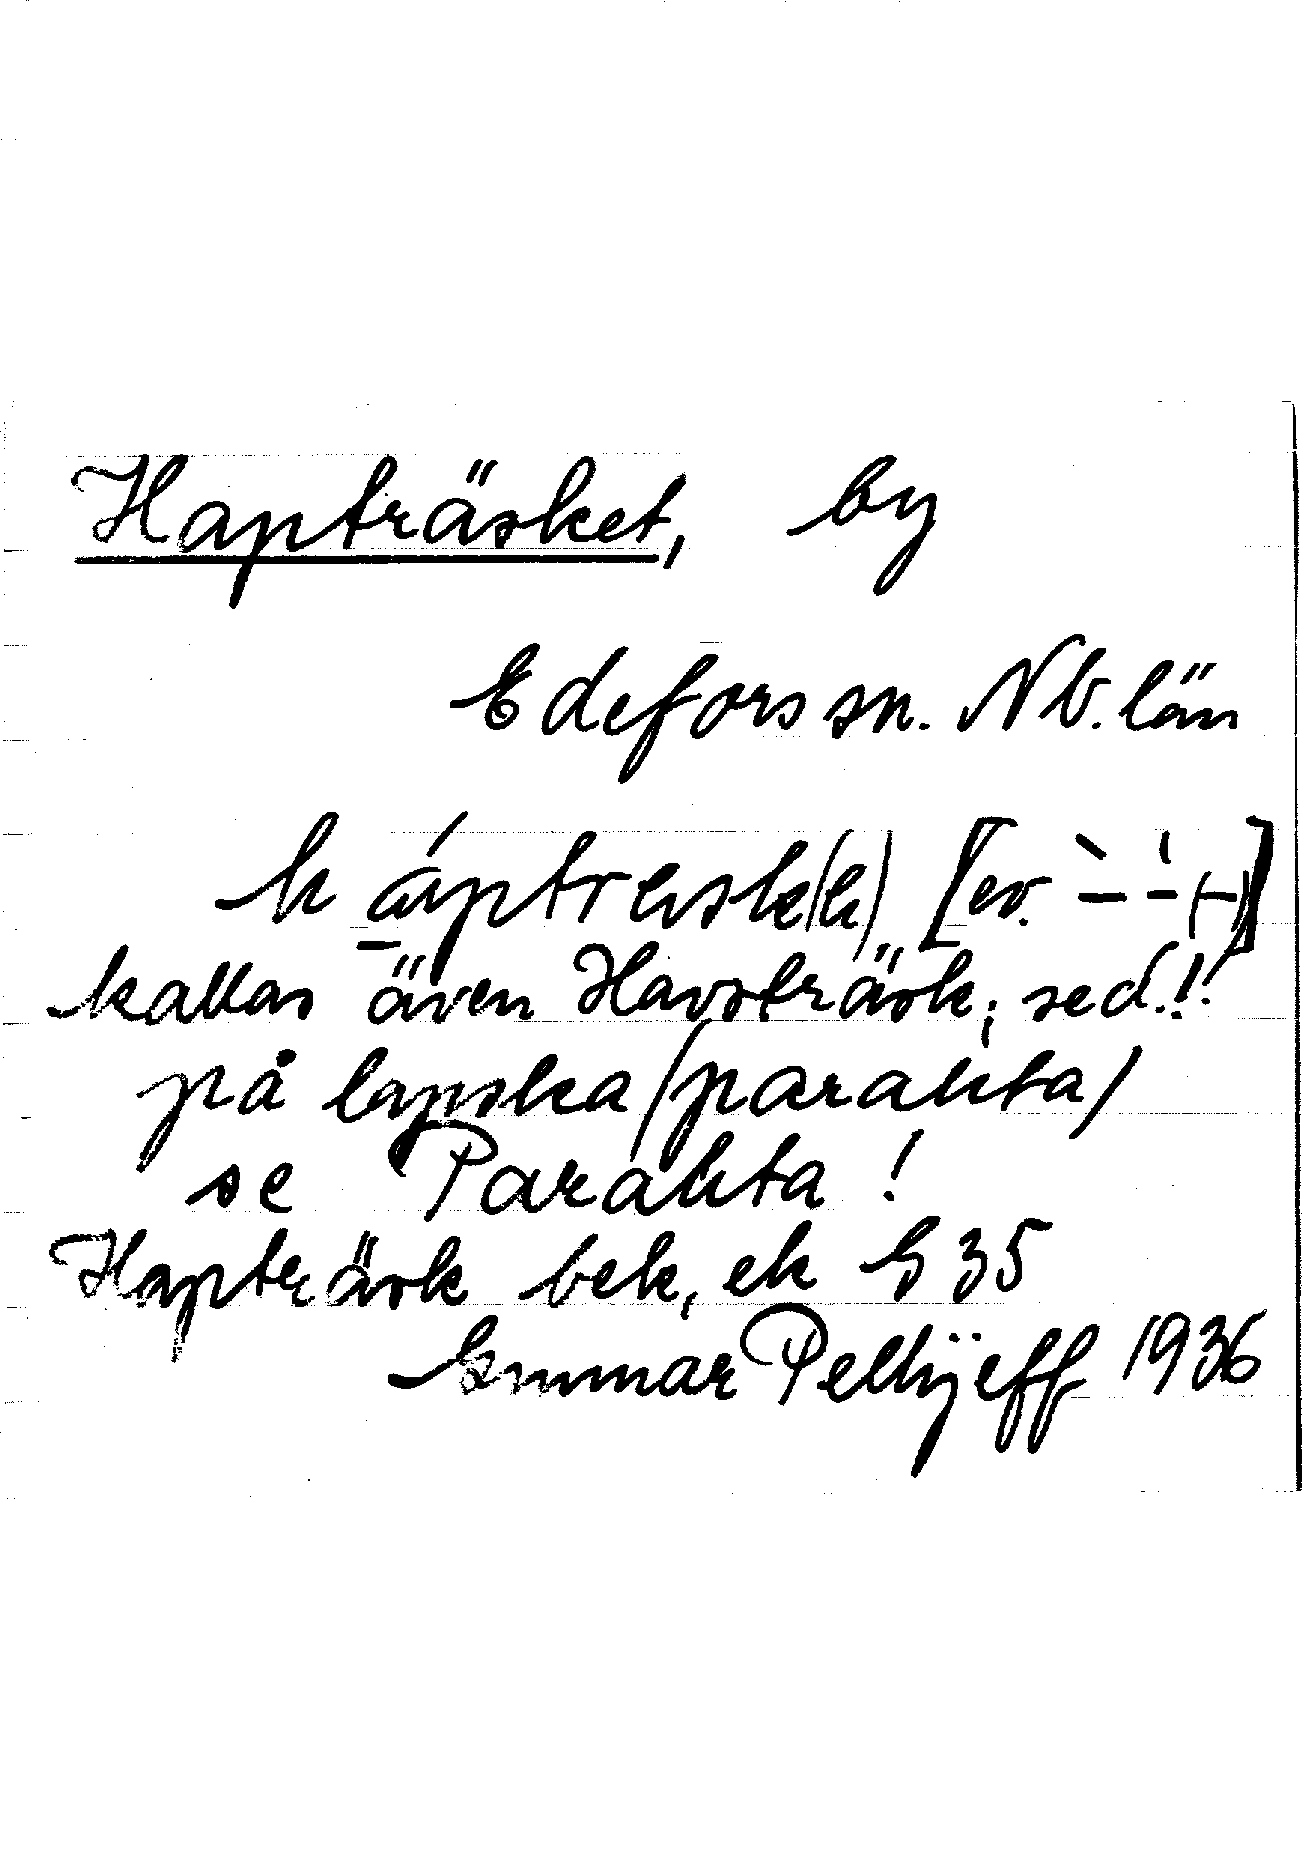 Hapträsket, by
Edefors sn. Nb. län
háptrεsk(k) [ev. ` – ' – (–)]
kallas även Havsträsk; se d.!!
på lapska /parahta/
se Parahta!
Hapträsk bek, ek G 35
Gunnar Pellijeff 1936